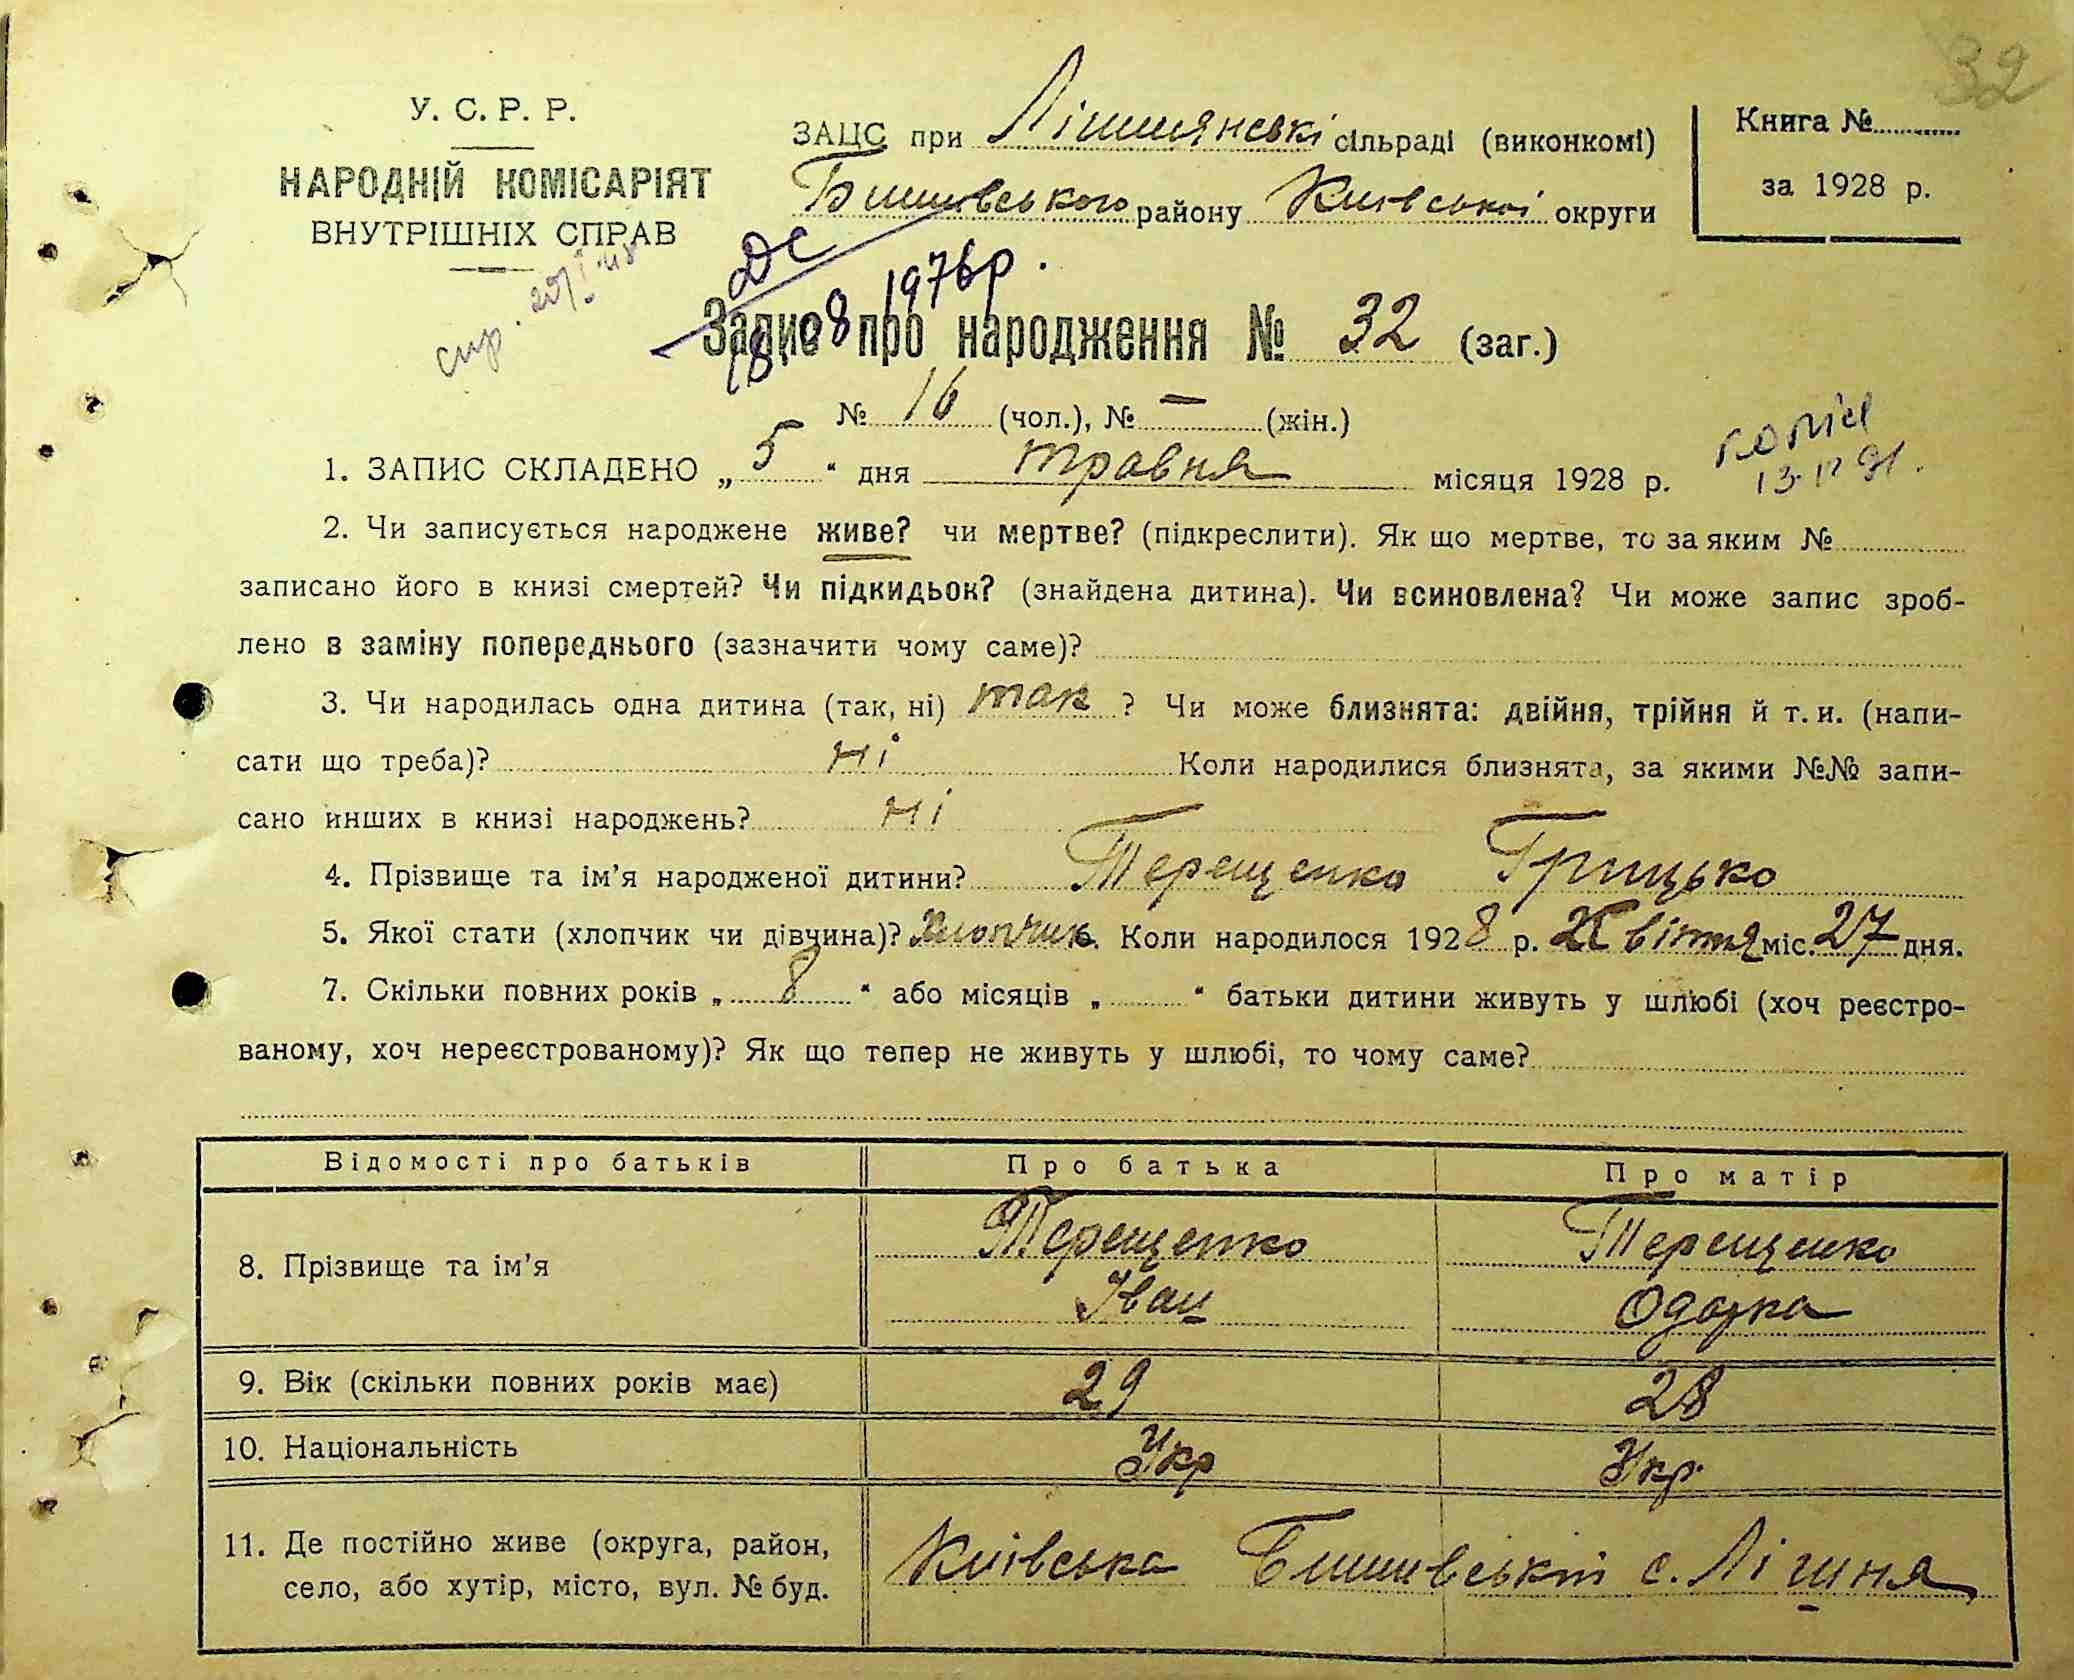 32
У. С. Р. Р.
НАРОДНІЙ КОМІСАРІЯТ
ВНУТРІШНІХ СПРАВ
ЗАЦС при Лішнянські сільраді (виконкомі)
Бишівського району Київської округи
Книга №
за 1928 р.
ДС
18 08 1976р.
Запис про народження № 32 (заг.)
№ 16 (чол.), № — (жін.)
копія
1. ЗАПИС СКЛАДЕНО „ 5 “ дня травня місяця 1928 р.
2. Чи записується народжене живе? чи мертве? (підкреслити). Як що мертве, то за яким №
записано його в книзі смертей? Чи підкидьок? (знайдена дитина). Чи всиновлена? Чи може запис зроб-
лено в заміну попереднього (зазначити чому саме)?
3. Чи народилась одна дитина (так, ні) так ? Чи може близнята: двійня, трійня й т. и. (напи-
сати що треба)? ні Коли народилися близнята, за якими №№ запи-
сано инших в книзі народжень? ні
4. Прізвище та ім'я народженої дитини? Терещенко Грицько
5. Якої стати (хлопчик чи дівчина)? Хлопчик. Коли народилося 1928 р. Квітня міс. 27 дня.
7. Скільки повних років „ 8 “ або місяців „ “ батьки дитини живуть у шлюбі (хоч реєстро-
ваному, хоч нереєстрованому)? Як що тепер не живуть у шлюбі, то чому саме?
Відомості про батьків Про батька Про матір
8. Прізвище та ім'я Терещенко Іван Терещенко Одарка
9. Вік (скільки повних років має) 29 28
10. Національність Укр Укр.
11. Де постійно живе (округа, район,
село, або хутір, місто, вул. № буд. Київська Бишівський с. Лішня